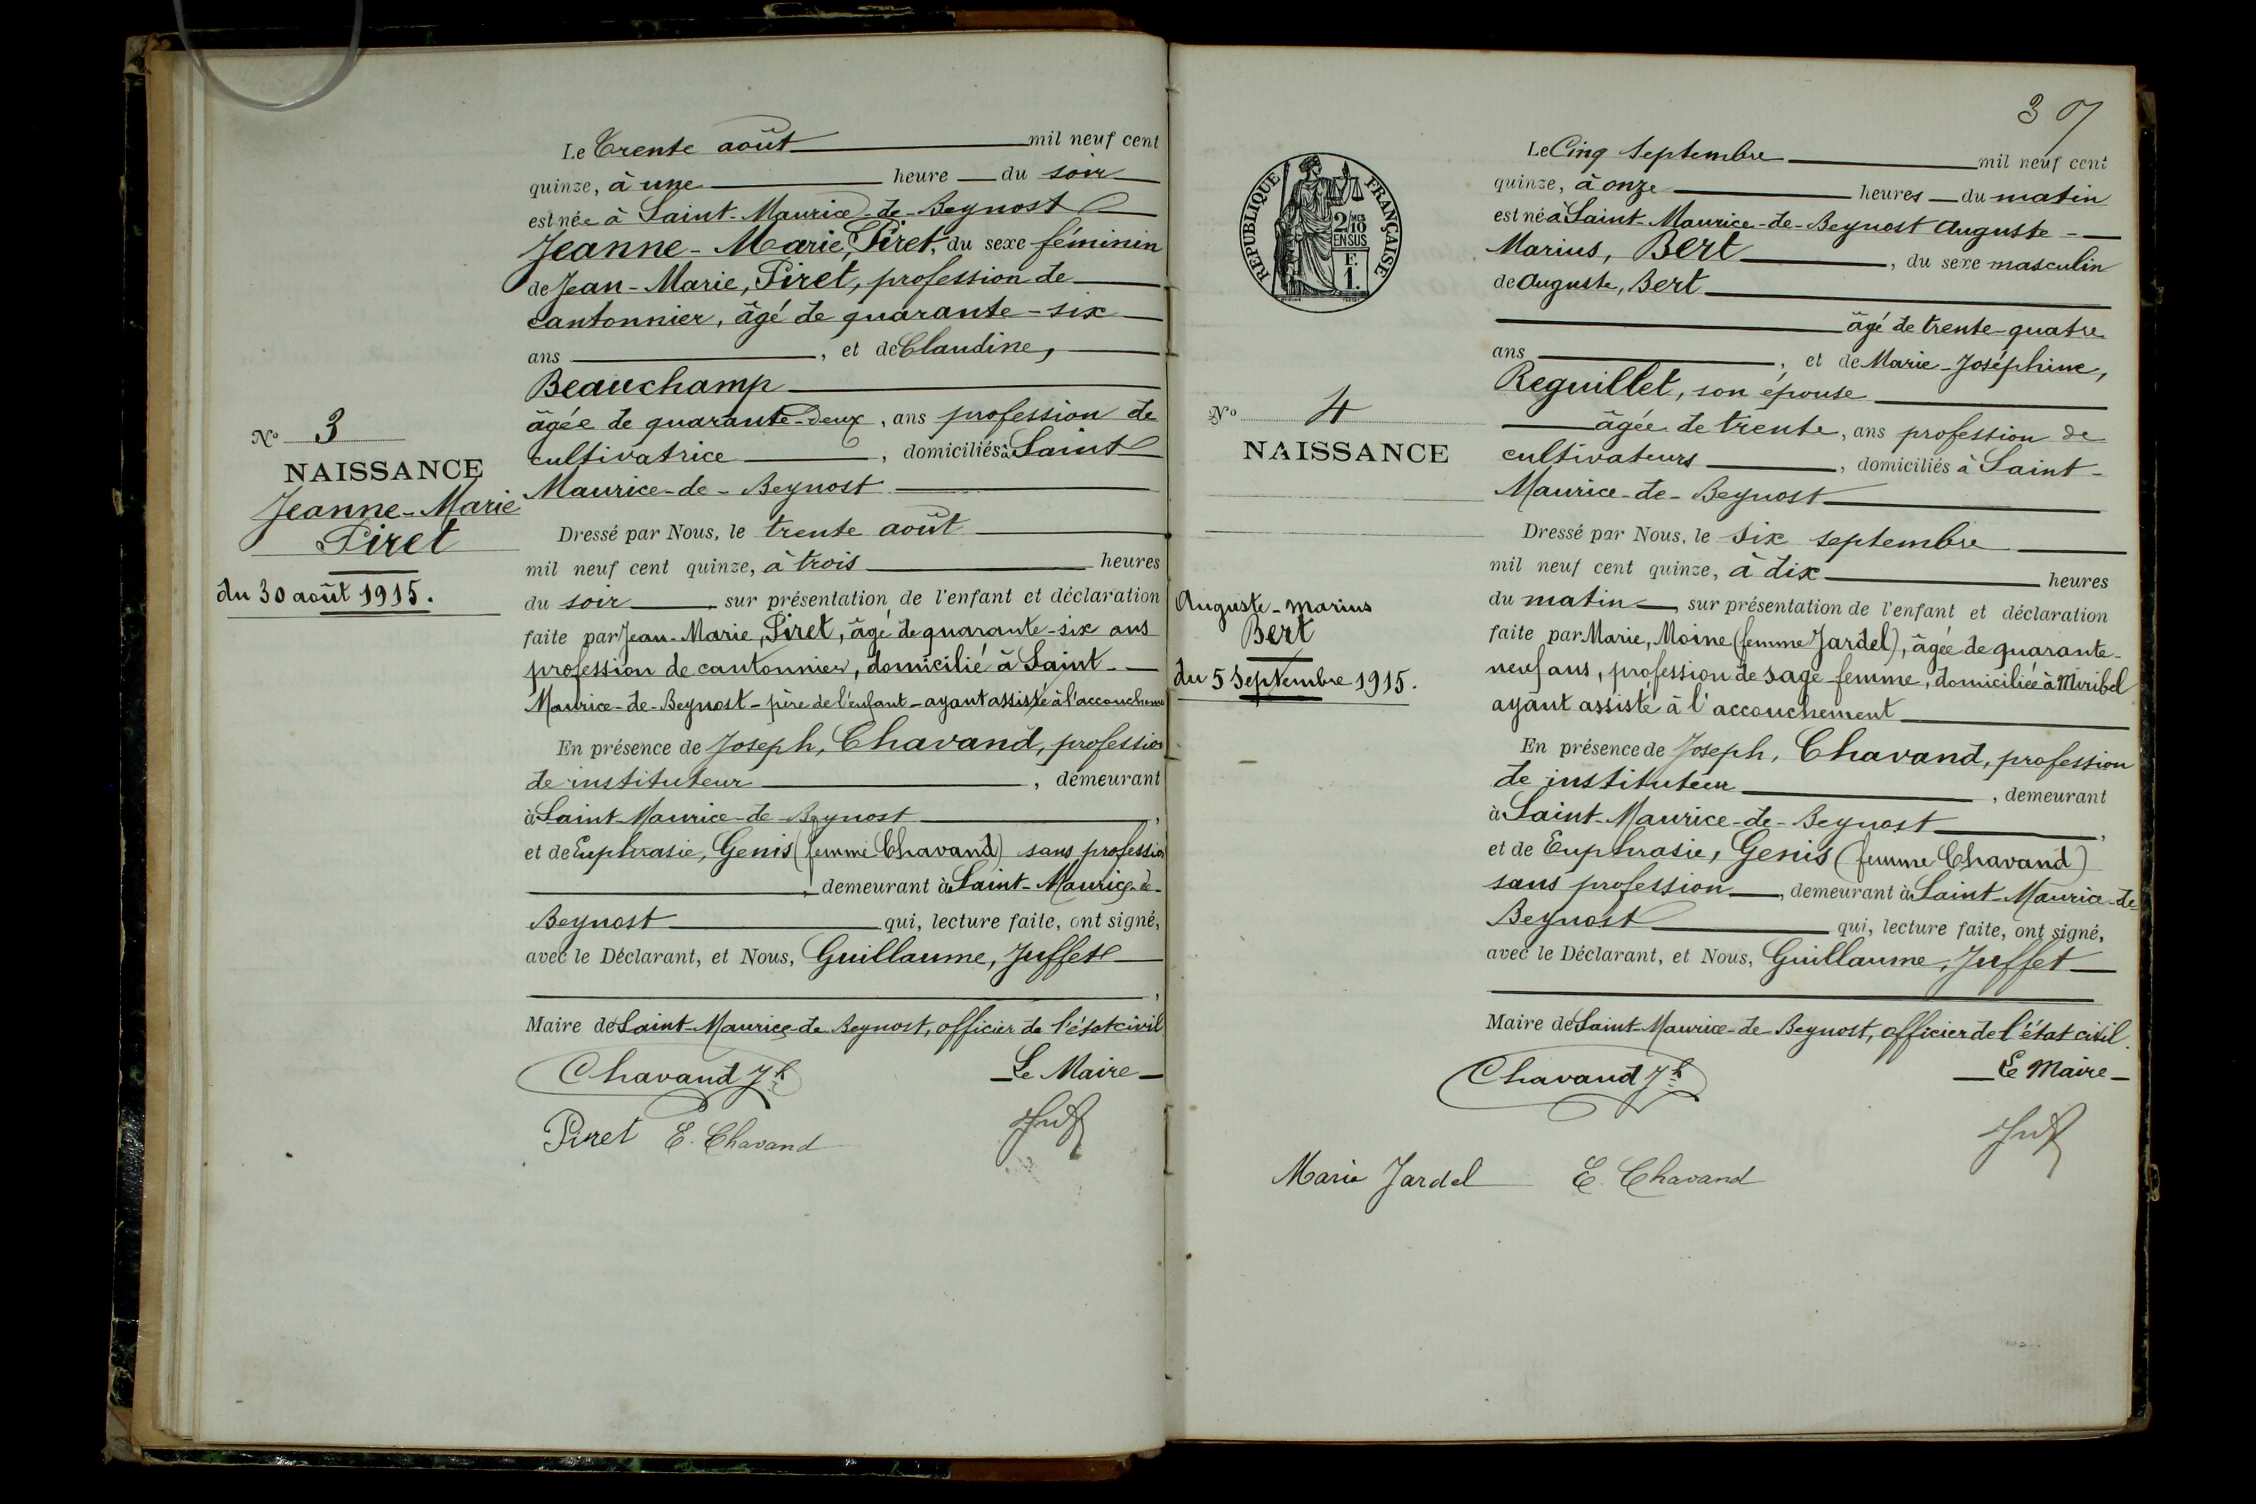 N° 3
NAISSANCE
Jeanne-Marie
Piret
du 30 août 1915.
Le Trente août mil neuf cent
quinze, à une heure du soir
est née à Saint-Maurice-de-Beynost
Jeanne-Marie, Piret, du sexe féminin
de Jean-Marie, Piret, profession de
cantonnier, âgé de quarante-six
ans , et de Claudine,
Beauchamp
âgée de quarante-deux, ans profession de
cultivatrice , domiciliés à Saint
Maurice-de-Beynost
Dressé par Nous, le trente août
mil neuf cent quinze, à trois heures
du soir sur présentation de l'enfant et déclaration
faite par Jean-Marie, Piret, âgé de quarante-six ans
profession de cantonnier, domicilié à Saint-
Maurice-de-Beynost - père de l'enfant - ayant assisté à l'accouchement
En présence de Joseph, Chavand, profession
de instituteur , demeurant
à Saint-Maurice-de-Beynost ,
et de Euphrasie, Genis (femme Chavand) sans profession
, demeurant à Saint-Maurice-de-
Beynost qui, lecture faite, ont signé,
avec le Déclarant, et Nous, Guillaume, Juffet
,
Maire de Saint-Maurice-de-Beynost, officier de l'état civil
Chavand Jh Le Maire
Piret E. Chavand
307
RÉPUBLIQUE FRANÇAISE
2/10
EN SUS
F.
1.
N° 4
NAISSANCE
Auguste-Marius
Bert
du 5 Septembre 1915.
Le Cinq Septembre mil neuf cent
quinze, à onze heures du matin
est né à Saint-Maurice-de-Beynost Auguste-
Marius, Bert , du sexe masculin
de Auguste, Bert
âgé de trente-quatre
ans , et de Marie-Joséphine,
Reguillet, son épouse
âgée de trente, ans profession de
cultivateurs , domiciliés à Saint-
Maurice-de-Beynost
Dressé par Nous, le six septembre
mil neuf cent quinze, à dix heures
du matin sur présentation de l'enfant et déclaration
faite par Marie, Moine (femme Jardel), âgée de quarante-
neuf ans, profession de sage-femme, domiciliée à Miribel
ayant assisté à l'accouchement
En présence de Joseph, Chavand, profession
de instituteur , demeurant
à Saint-Maurice-de-Beynost ,
et de Euphrasie, Genis (femme Chavand)
sans profession , demeurant à Saint-Maurice-de
Beynost qui, lecture faite, ont signé,
avec le Déclarant, et Nous, Guillaume, Juffet
Maire de Saint-Maurice-de-Beynost, officier de l'état civil.
Chavand Jh Le Maire
Marie Jardel E. Chavand